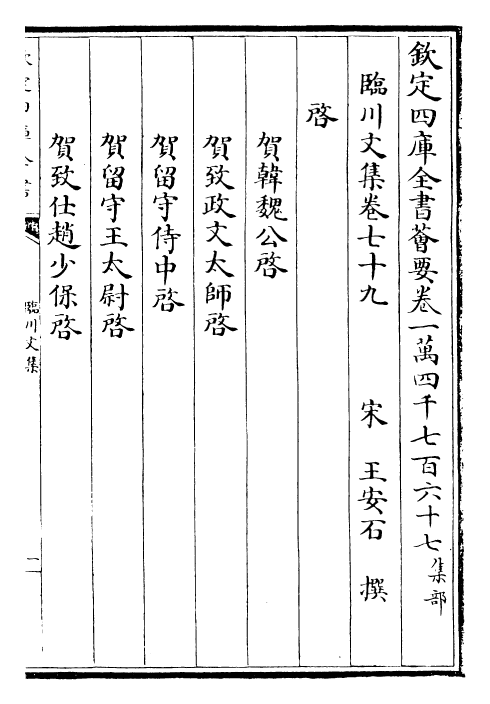 欽定四庫全書薈要卷一萬四千七百六十七集部
臨川文集卷七十九　宋　王安石　撰
啓
賀韓魏公啓
賀致政文太師啓
賀留守侍中啓
賀留守王太尉啓
賀致仕趙少保啓
臨川文集
一